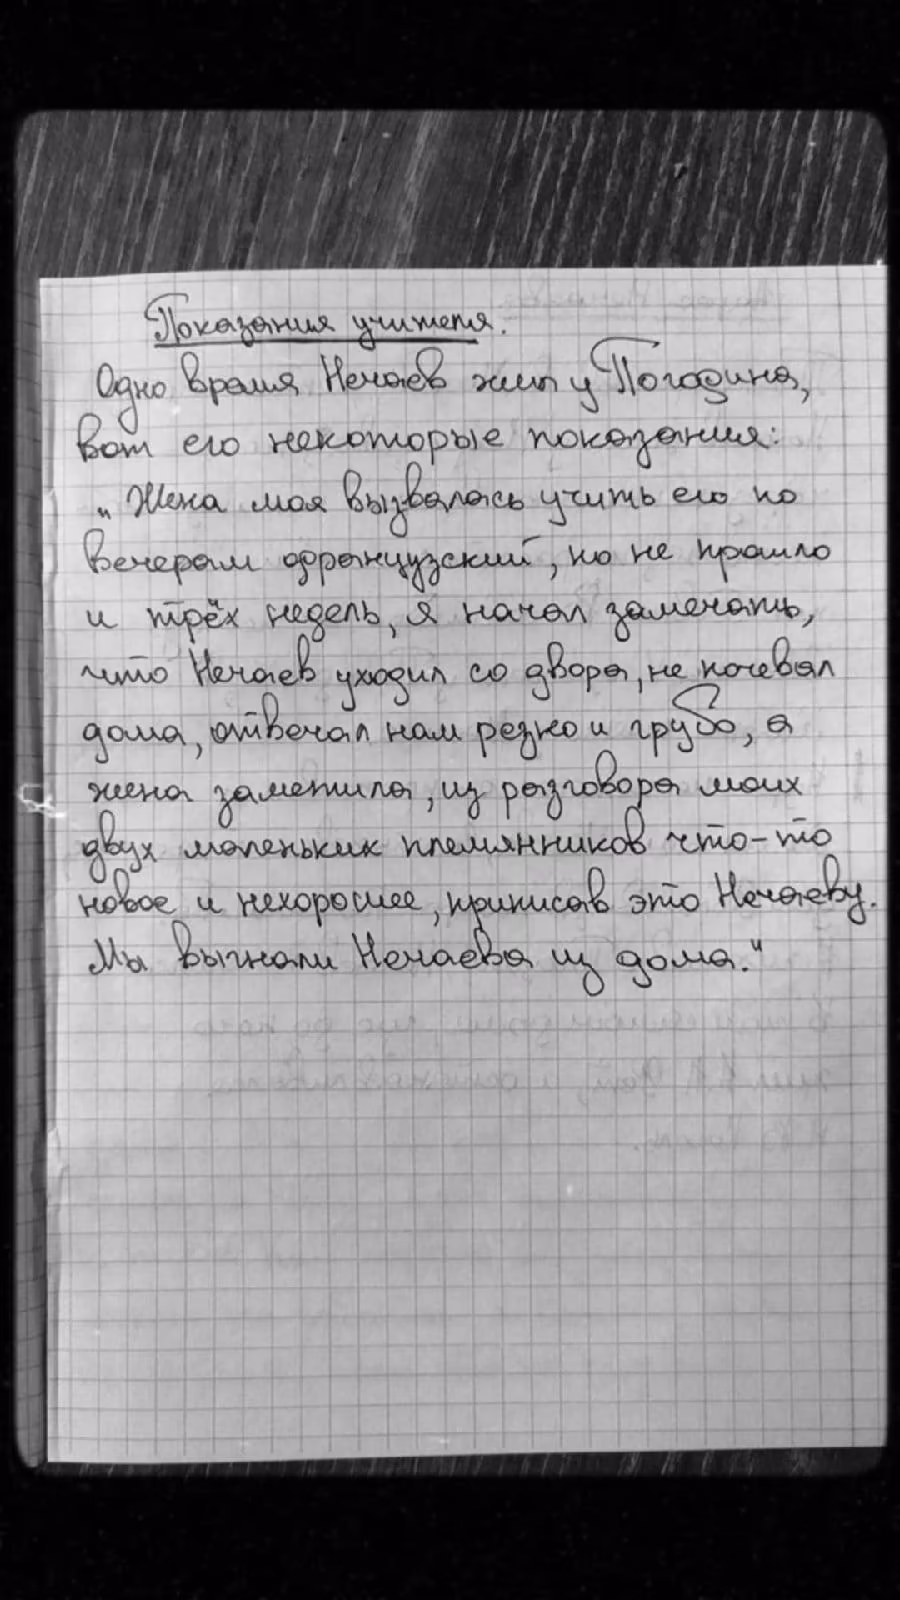 Показания учителя.
Одно время Нечаев жил у Погодина,
вот его некоторые показания:
„Жена моя вызвалась учить его по
вечерам французский, но не прошло
и трёх недель, я начал замечать,
что Нечаев уходил со двора, не ночевал
дома, отвечал нам резко и грубо, а
жена заметила, из разговора моих
двух маленьких племянников что-то
новое и нехорошее, приписав это Нечаеву.
Мы выгнали Нечаева из дома."